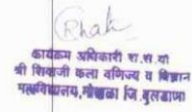 कार्यक्रम अधिकारी रा.स.यो
श्री शिवाजी कला वणिज्य व विज्ञान
महाविद्यालय, मोताळा जि.बुलडाणा